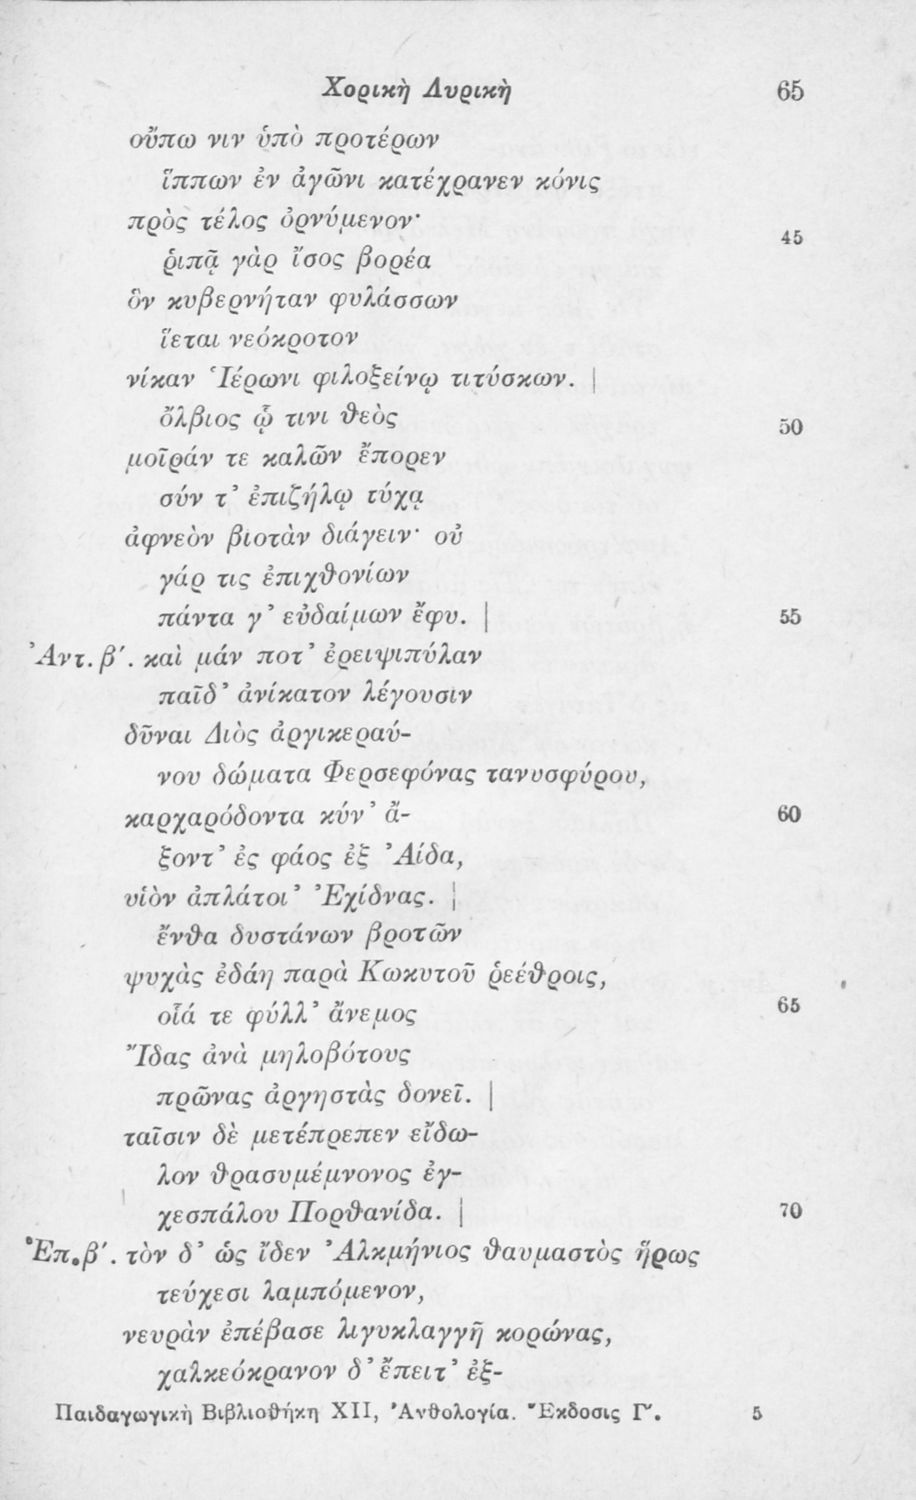 Χορικὴ Λυρικὴ 65
οὔπω νιν ὑπὸ προτέρων
ἵππων ἐν ἀγῶνι κατέχρανεν κόνις
πρὸς τέλος ὀρνύμενον· 45
ῥιπᾷ γὰρ ἴσος βορέα
ὃν κυβερνήταν φυλάσσων
ἵεται νεόκροτον
νίκαν Ἱέρωνι φιλοξείνῳ τιτύσκων. |
ὄλβιος ᾧ τινι θεὸς 50
μοῖράν τε καλῶν ἔπορεν
σύν τ' ἐπιζήλῳ τύχᾳ
ἀφνεὸν βιοτὰν διάγειν· οὐ
γάρ τις ἐπιχθονίων
πάντα γ' εὐδαίμων ἔφυ. | 55
Ἀντ. β'. καὶ μάν ποτ' ἐρειψιπύλαν
παῖδ' ἀνίκατον λέγουσιν
δῦναι Διὸς ἀργικεραύ-
νου δώματα Φερσεφόνας τανυσφύρου,
καρχαρόδοντα κύν' ἄ- 60
ξοντ' ἐς φάος ἐξ Ἀίδα,
υἱὸν ἀπλάτοι' Ἐχίδνας. |
ἔνθα δυστάνων βροτῶν
ψυχὰς ἐδάη παρὰ Κωκυτοῦ ῥεέθροις,
οἷά τε φύλλ' ἄνεμος 65
Ἴδας ἀνὰ μηλοβότους
πρῶνας ἀργηστὰς δονεῖ. |
ταῖσιν δὲ μετέπρεπεν εἴδω-
λον θρασυμέμνονος ἐγ-
χεσπάλου Πορθανίδα. | 70
Ἐπ. β'. τὸν δ' ὡς ἴδεν Ἀλκμήνιος θαυμαστὸς ἥρως
τεύχεσι λαμπόμενον,
νευρὰν ἐπέβασε λιγυκλαγγῆ κορώνας,
χαλκεόκρανον δ' ἔπειτ' ἐξ-
Παιδαγωγικὴ Βιβλιοθήκη XII, Ἀνθολογία. Ἔκδοσις Γ'. 5